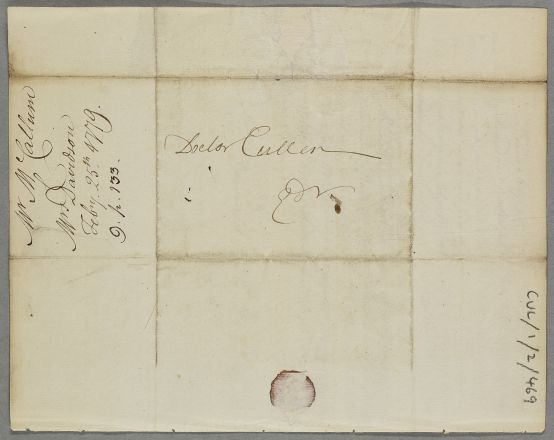 Doctor Cullen
Mr McCallum
Mrs Davidson
Feby. 25th 1779.
9. p. 133.
CUL/1/2/469